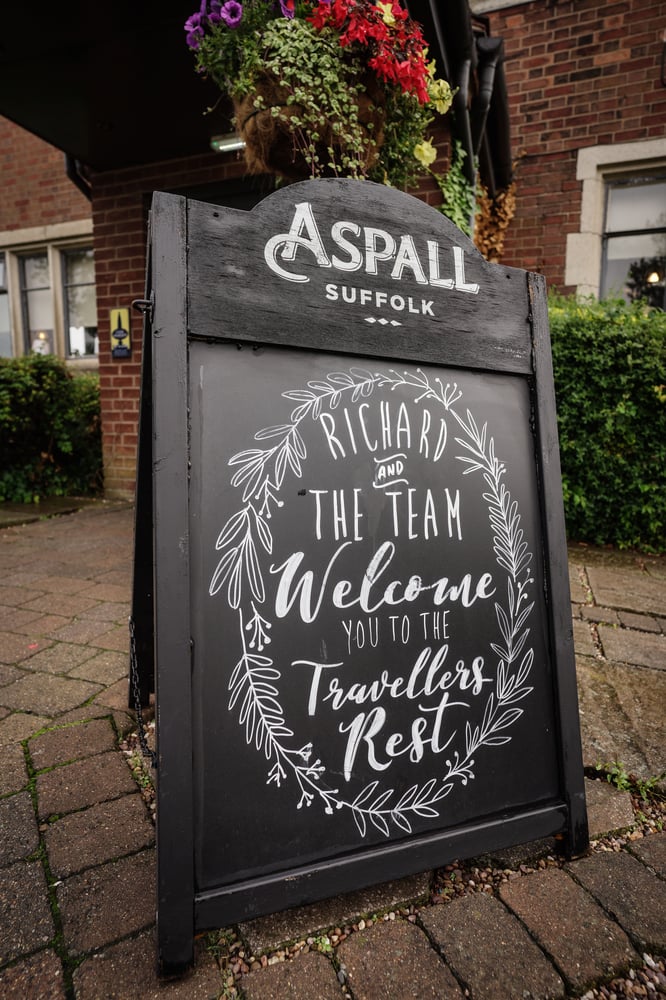 ASPALL
SUFFOLK
RICHARD
AND
THE TEAM
Welcome
YOU TO THE
Travellers
Rest